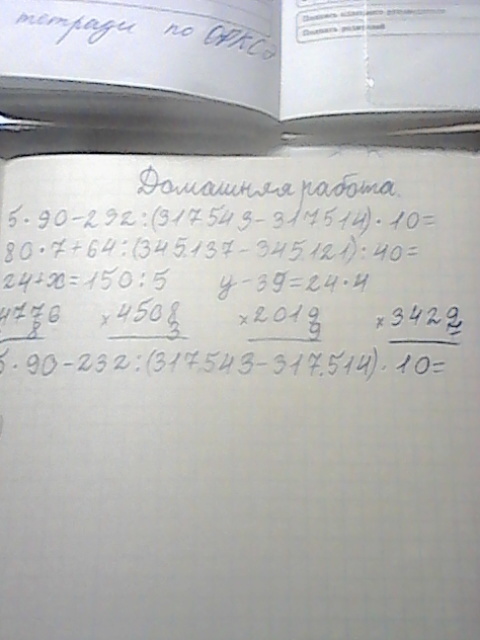 тетради по ОРКСЭ
Показать
Показать
Домашняя работа.
5·90-232:(317543-317514)·10=
80·7+64:(345137-345121):40=
24+x=150:5 y-39=24·4
4776 ×4508 ×2019 ×3429
8 3 9 7
5·90-232:(317543-317514)·10=